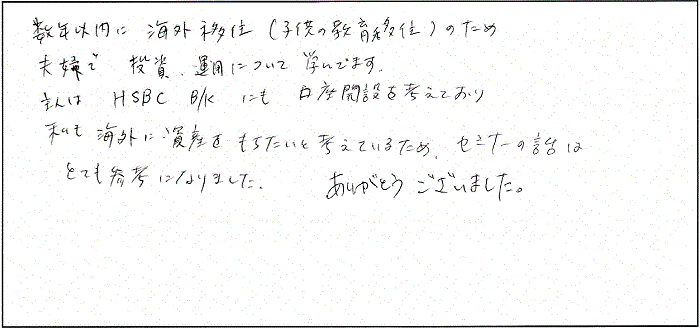 数年以内に 海外移住 (子供の教育移住) のため
夫婦で 投資、運用について 学んでます。
主人は HSBC B/K にも 口座開設を考えており
私も 海外に資産をもちたいと考えているため、セミナーの話は
とても参考になりました。 ありがとうございました。